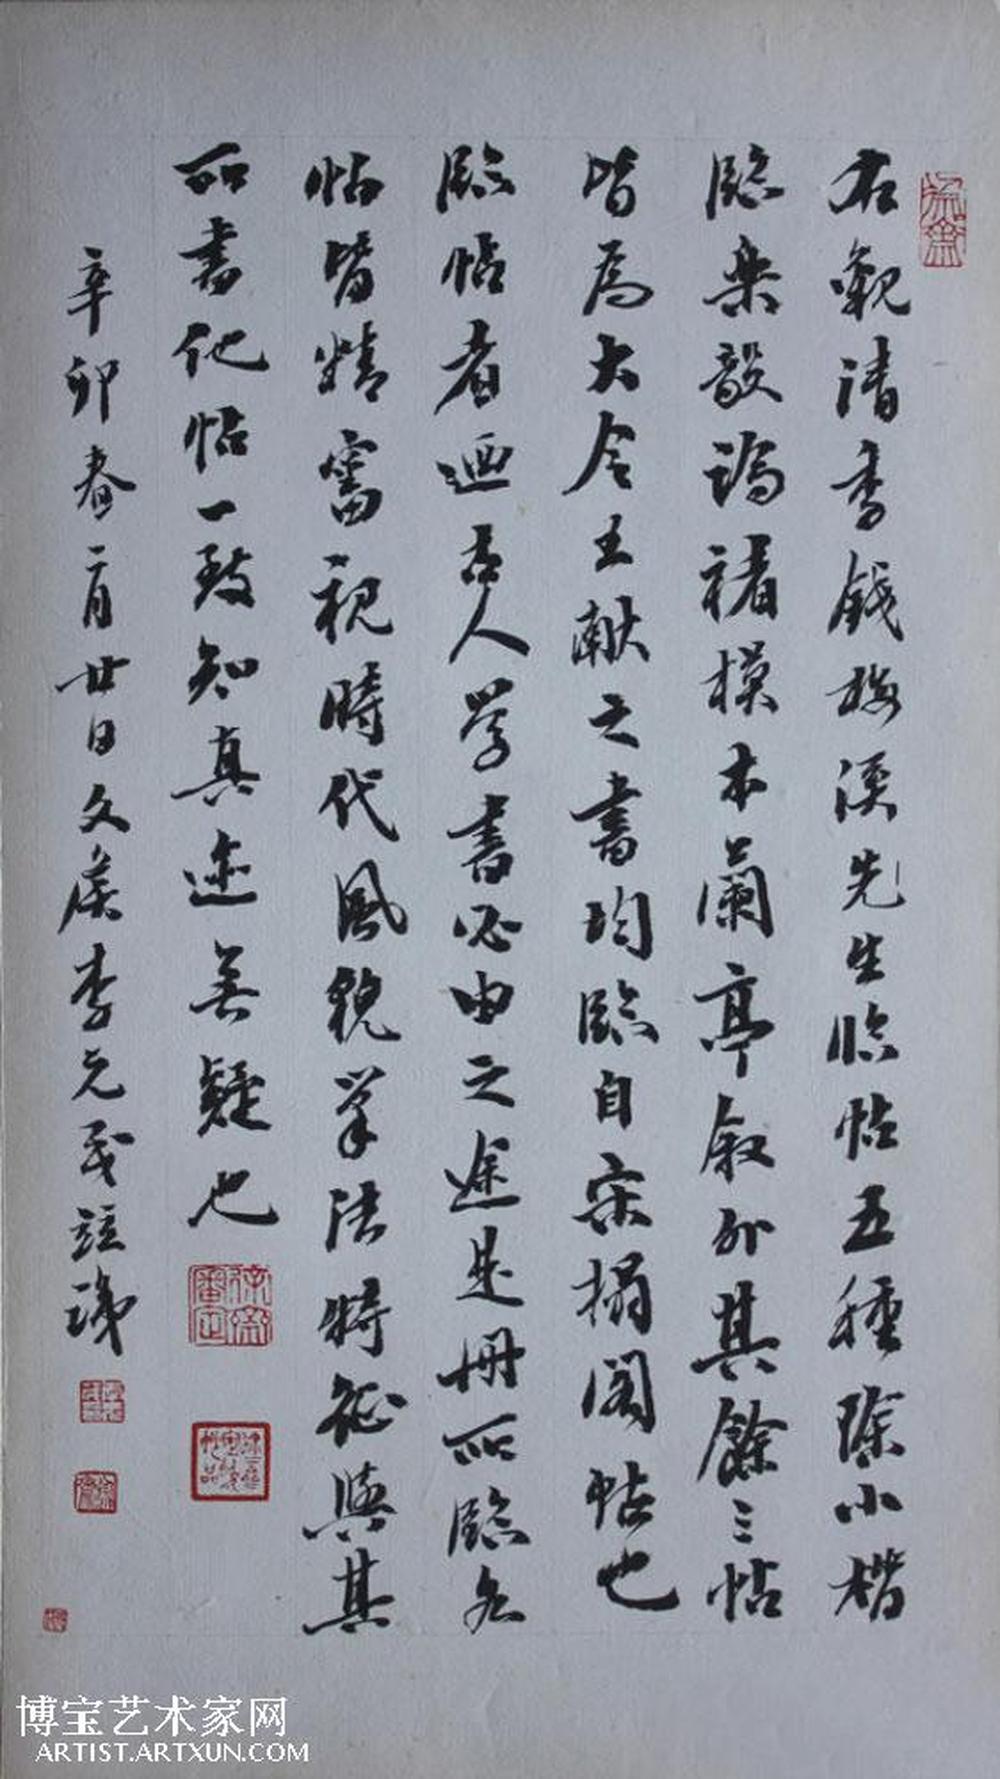 右观清季錢梅溪先生临帖五種除小楷
臨樂毅論褚模本蘭亭叙外其餘三帖
皆為大令王献之書均臨自宋搨閣帖也
臨帖者迺古人學書必由之途是册所臨各
帖皆精審視時代風貌筆法特征與其
所書他帖一致知真迹無疑也
辛卯春二月廿日文侯李元茂註識
博宝艺术家网
ARTIST.ARTXUN.COM